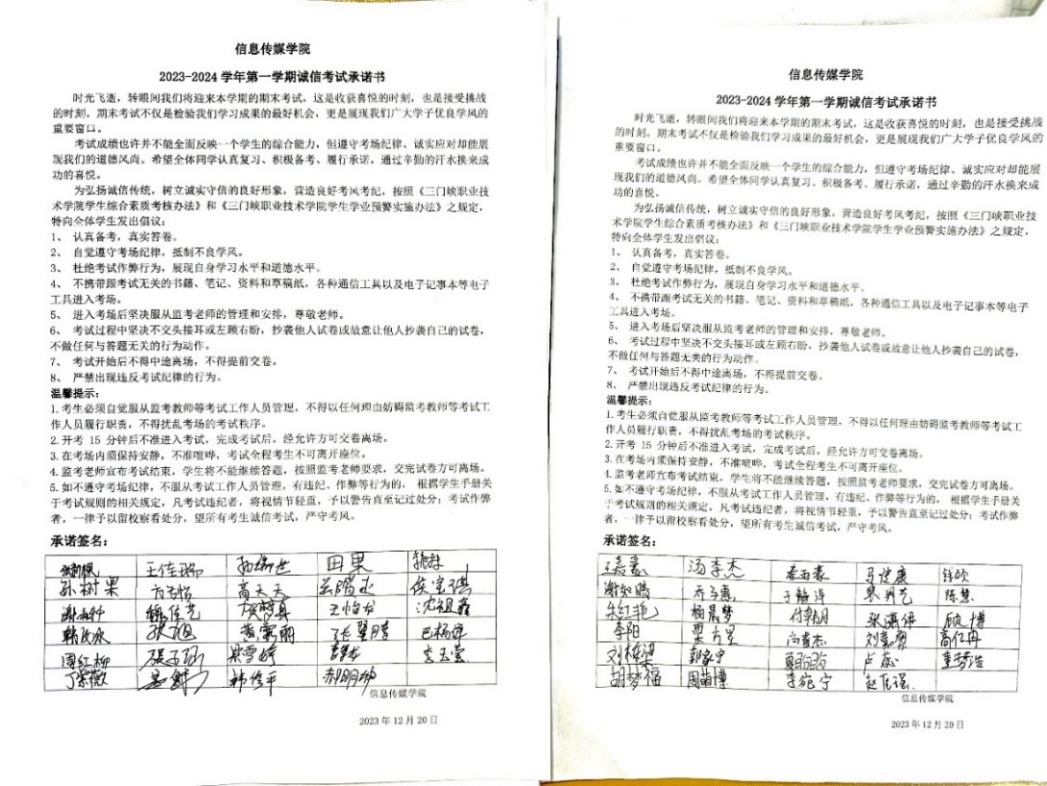 信息传媒学院
2023-2024 学年第一学期诚信考试承诺书
时光飞逝，转眼间我们将迎来本学期的期末考试，这是收获喜悦的时刻，也是接受挑战
的时刻。期末考试不仅是检验我们学习成果的最好机会，更是展现我们广大学子优良学风的
重要窗口。
考试成绩也许并不能全面反映一个学生的综合能力，但遵守考场纪律、诚实应对却能展
现我们的道德风尚。希望全体同学认真复习、积极备考、履行承诺，通过辛勤的汗水换来成
功的喜悦。
为弘扬诚信传统，树立诚实守信的良好形象，营造良好考风考纪，按照《三门峡职业技
术学院学生综合素质考核办法》和《三门峡职业技术学院学生学业预警实施办法》之规定，
特向全体学生发出倡议：
1、 认真备考，真实答卷。
2、 自觉遵守考场纪律，抵制不良学风。
3、 杜绝考试作弊行为，展现自身学习水平和道德水平。
4、 不携带跟考试无关的书籍、笔记、资料和草稿纸，各种通信工具以及电子记事本等电子
工具进入考场。
5、 进入考场后坚决服从监考老师的管理和安排，尊敬老师。
6、 考试过程中坚决不交头接耳或左顾右盼，抄袭他人试卷或故意让他人抄袭自己的试卷，
不做任何与答题无关的行为动作。
7、 考试开始后不得中途离场，不得提前交卷。
8、 严禁出现违反考试纪律的行为。
温馨提示：
1.考生必须自觉服从监考教师等考试工作人员管理，不得以任何理由妨碍监考教师等考试工
作人员履行职责，不得扰乱考场的考试秩序。
2.开考 15 分钟后不准进入考试，完成考试后，经允许方可交卷离场。
3.在考场内须保持安静，不准喧哗，考试全程考生不可离开座位。
4.监考老师宣布考试结束，学生将不能继续答题，按照监考老师要求，交完试卷方可离场。
5.如不遵守考场纪律，不服从考试工作人员管理，有违纪、作弊等行为的， 根据学生手册关
于考试规则的相关规定，凡考试违纪者，将视情节轻重，予以警告直至记过处分；考试作弊
者，一律予以留校察看处分，望所有考生诚信考试，严守考风。
承诺签名：
田果
孙树果 高天天
周红柳
丁紫薇
信息传媒学院
2023 年 12 月 20 日
信息传媒学院
2023-2024 学年第一学期诚信考试承诺书
时光飞逝，转眼间我们将迎来本学期的期末考试，这是收获喜悦的时刻，也是接受挑战
的时刻。期末考试不仅是检验我们学习成果的最好机会，更是展现我们广大学子优良学风的
重要窗口。
考试成绩也许并不能全面反映一个学生的综合能力，但遵守考场纪律、诚实应对却能展
现我们的道德风尚。希望全体同学认真复习、积极备考、履行承诺，通过辛勤的汗水换来成
功的喜悦。
为弘扬诚信传统，树立诚实守信的良好形象，营造良好考风考纪，按照《三门峡职业技
术学院学生综合素质考核办法》和《三门峡职业技术学院学生学业预警实施办法》之规定，
特向全体学生发出倡议：
1、 认真备考，真实答卷。
2、 自觉遵守考场纪律，抵制不良学风。
3、 杜绝考试作弊行为，展现自身学习水平和道德水平。
4、 不携带跟考试无关的书籍、笔记、资料和草稿纸，各种通信工具以及电子记事本等电子
工具进入考场。
5、 进入考场后坚决服从监考老师的管理和安排，尊敬老师。
6、 考试过程中坚决不交头接耳或左顾右盼，抄袭他人试卷或故意让他人抄袭自己的试卷，
不做任何与答题无关的行为动作。
7、 考试开始后不得中途离场，不得提前交卷。
8、 严禁出现违反考试纪律的行为。
温馨提示：
1.考生必须自觉服从监考教师等考试工作人员管理，不得以任何理由妨碍监考教师等考试工
作人员履行职责，不得扰乱考场的考试秩序。
2.开考 15 分钟后不准进入考试，完成考试后，经允许方可交卷离场。
3.在考场内须保持安静，不准喧哗，考试全程考生不可离开座位。
4.监考老师宣布考试结束，学生将不能继续答题，按照监考老师要求，交完试卷方可离场。
5.如不遵守考场纪律，不服从考试工作人员管理，有违纪、作弊等行为的， 根据学生手册关
于考试规则的相关规定，凡考试违纪者，将视情节轻重，予以警告直至记过处分；考试作弊
者，一律予以留校察看处分，望所有考生诚信考试，严守考风。
承诺签名：
汤李杰
陈慧
杨晨梦
李阳
胡梦福 周萌博
信息传媒学院
2023 年 12 月 20 日